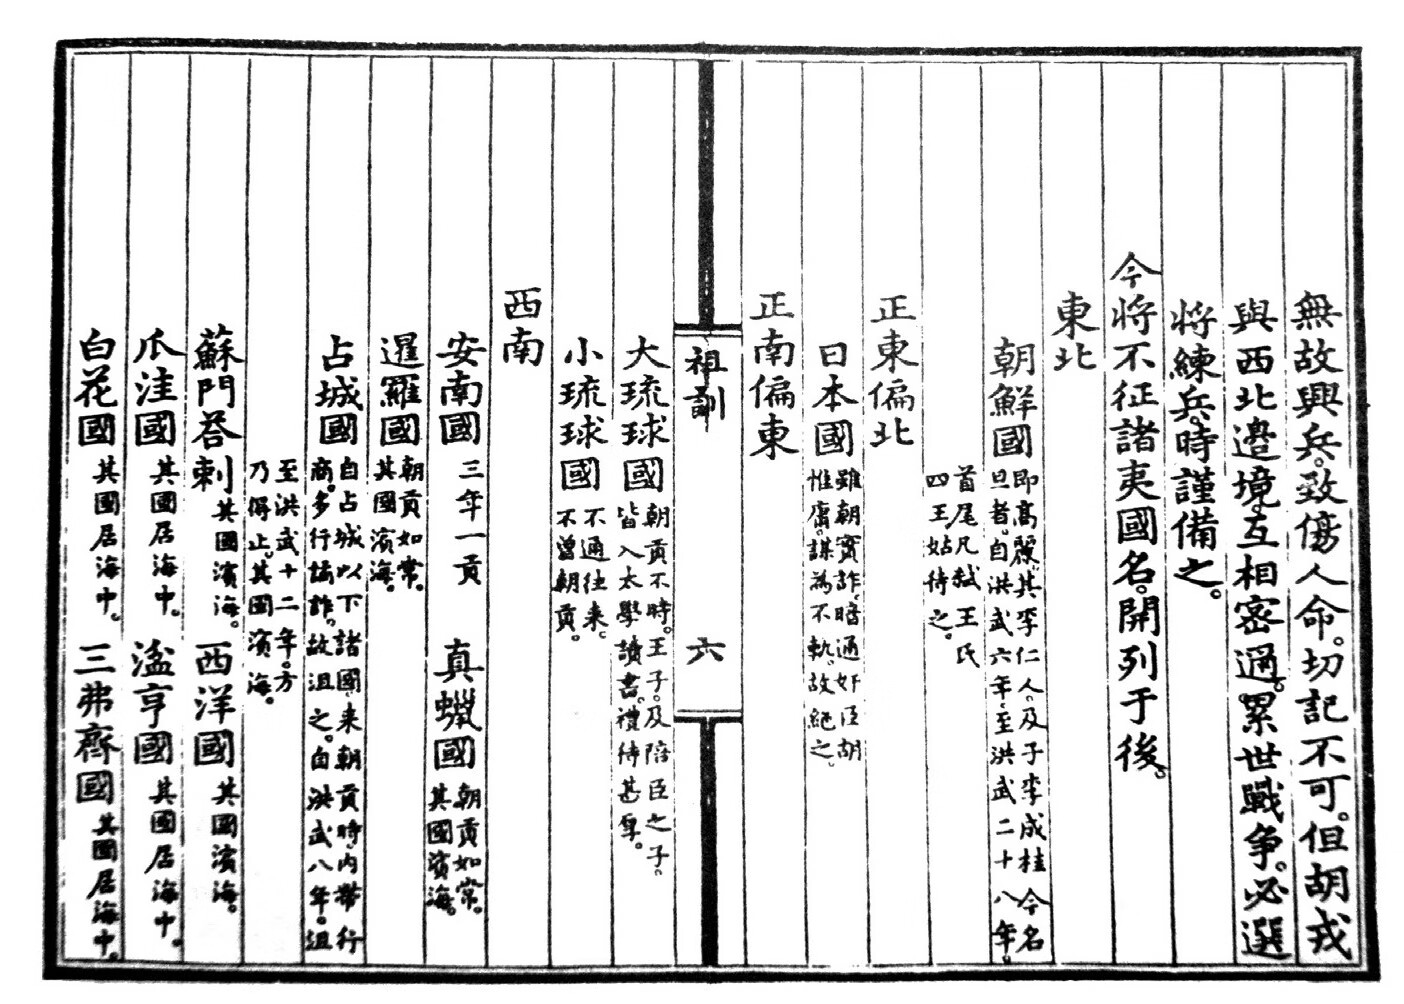 無故興兵。致傷人命。切記不可。但胡戎
與西北邉境。互相密邇。累世戰争。必選
將練兵。時謹備之。
今將不征諸夷國名。開列于後。
東北
朝鮮國
即高麗。其李仁人。及子李成桂今名
旦者。自洪武六年。至洪武二十八年。
首尾凡弑王氏
四王。姑待之。
正東偏北
日本國
雖朝實詐。暗通奸臣胡
惟庸。謀為不軌。故絶之。
正南偏東
祖訓 六
大琉球國
朝貢不時。王子。及陪臣之子。
皆入太學讀書。禮待甚厚。
小琉球國
不通往来。
不曾朝貢。
西南
安南國 三年一貢
真蠟國
朝貢如常。
其國濱海。
暹羅國
朝貢如常。
其國濱海。
占城國
自占城以下諸國。来朝貢時。内帶行
商。多行譎詐。故沮之。自洪武八年。沮
至洪武十二年。方
乃得止。其國濱海。
蘇門荅剌 其國濱海。 西洋國 其國濱海。
爪洼國 其國居海中。 湓亨國 其國居海中。
白花國 其國居海中。 三弗齊國 其國居海中。